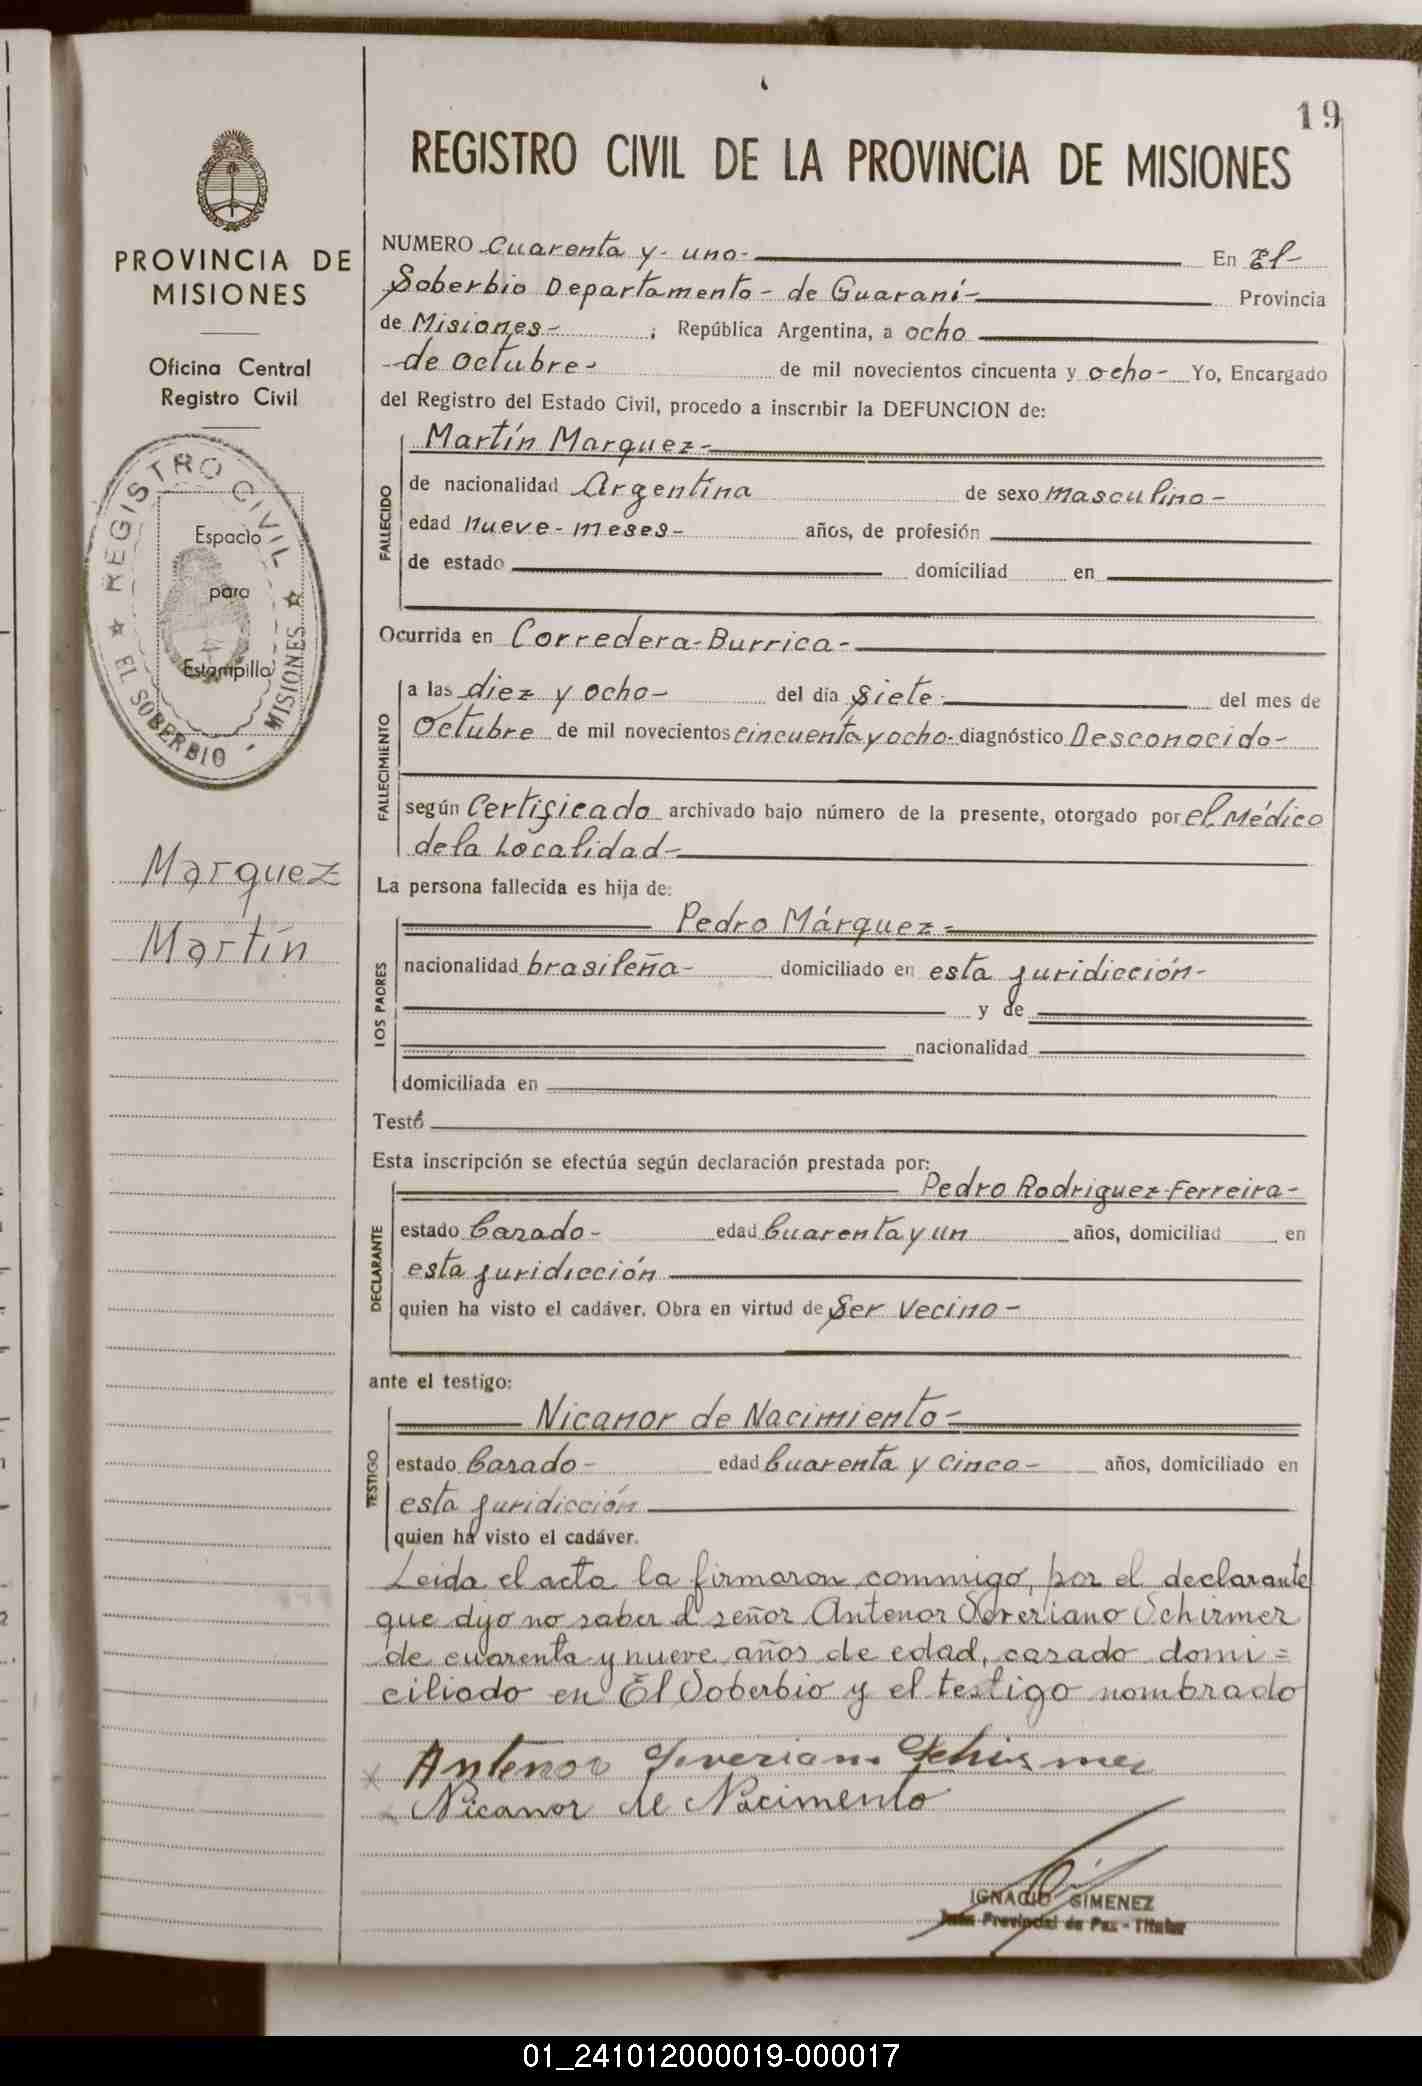 19
REGISTRO CIVIL DE LA PROVINCIA DE MISIONES
PROVINCIA DE
MISIONES
Oficina Central
Registro Civil
REGISTRO CIVIL
EL SOBERBIO - MISIONES
Espacio
para
Estampilla
Marquez
Martín
NUMERO Cuarenta y uno- En El-
Soberbio Departamento - de Guaraní- Provincia
de Misiones- ; República Argentina, a ocho
-de octubre- de mil novecientos cincuenta y ocho- Yo, Encargado
del Registro del Estado Civil, procedo a inscribir la DEFUNCION de:
Martín Marquez-
FALLECIDO
de nacionalidad Argentina de sexo masculino-
edad nueve-meses- años, de profesión
de estado domiciliad en
Ocurrida en Corredera-Burrica-
FALLECIMIENTO
a las diez y ocho- del día siete del mes de
Octubre de mil novecientos cincuenta y ocho- diagnóstico Desconocido-
según Certificado archivado bajo número de la presente, otorgado por el Médico
de la Localidad-
La persona fallecida es hija de:
Pedro Márquez-
LOS PADRES
nacionalidad brasileña- domiciliado en esta juridicción-
y de
nacionalidad
domiciliada en
Testó
Esta inscripción se efectúa según declaración prestada por:
Pedro Rodriguez Ferreira-
DECLARANTE
estado Casado- edad Cuarenta y un años, domiciliad en
esta juridicción
quien ha visto el cadáver. Obra en virtud de Ser Vecino-
ante el testigo:
Nicanor de Nacimiento-
TESTIGO
estado Casado- edad Cuarenta y Cinco- años, domiciliado en
esta juridicción
quien ha visto el cadáver.
Leida el acta la firmaron commigo, por el declarante
que dijo no saber el señor Antenor Severiano Schirmer
de cuarenta y nueve años de edad, casado domi=
ciliado en El Soberbio y el testigo nombrado
x Antenor Severiano Schirmer
Nicanor de Nacimento
IGNACIO GIMENEZ
Juez Provincial de Paz - Titular
01_241012000019-000017